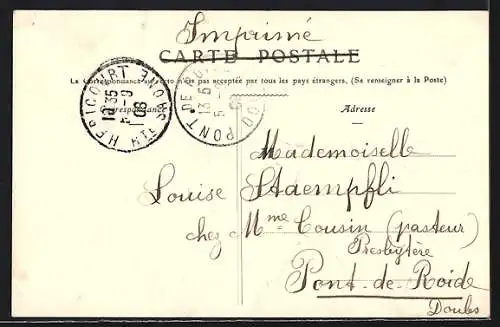 Imprimé
CARTE POSTALE
La Correspondance au recto n'est pas acceptée par tous les pays étrangers. (Se renseigner à la Poste)
Correspondance
Adresse
HERICOURT
18 35
5 -9
08
HTE SAONE
PONT-DE-
DOUBS
Mademoiselle
Louise Staempfli
chez Mme Cousin (pasteur)
Presbytère
Pont-de-Roide
Doubs